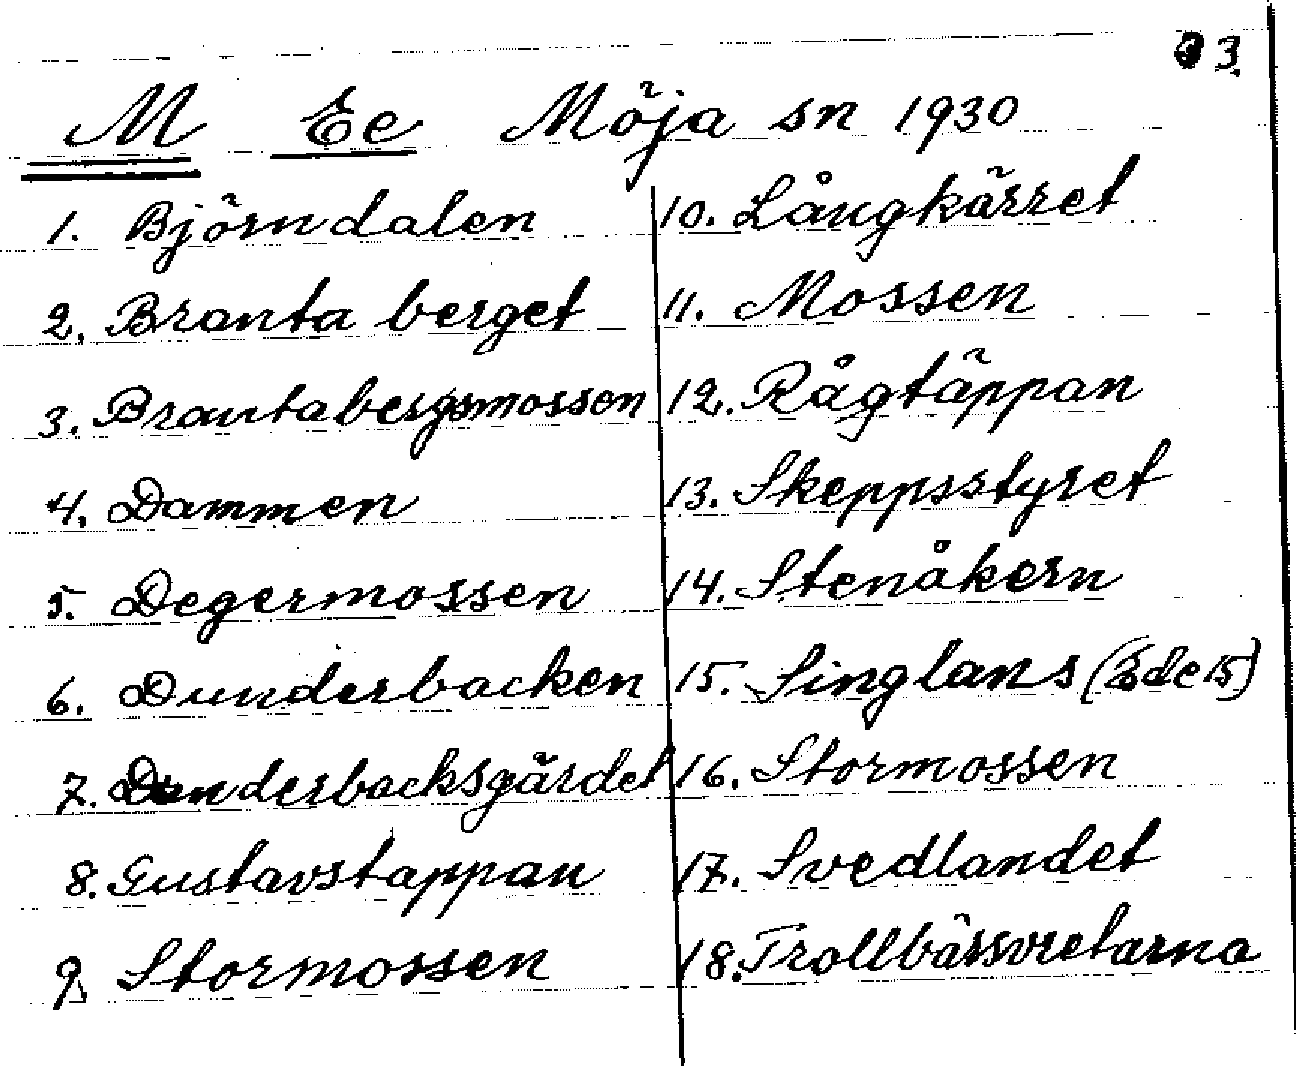 3.
M Ee Möja sn 1930
1. Björndalen
2. Branta berget
3. Brantabergsmossen
4. Dammen
5. Degermossen
6. Dunderbacken
7. Dunderbacksgärdet
8. Gustavstappan
9. Stormossen
10. Långkärret
11. Mossen
12. Rågtäppan
13. Skeppsstyret
14. Stenåkern
15. Singlans (Ede 15)
16. Stormossen
17. Svedlandet
18. Trollbärsvretarna